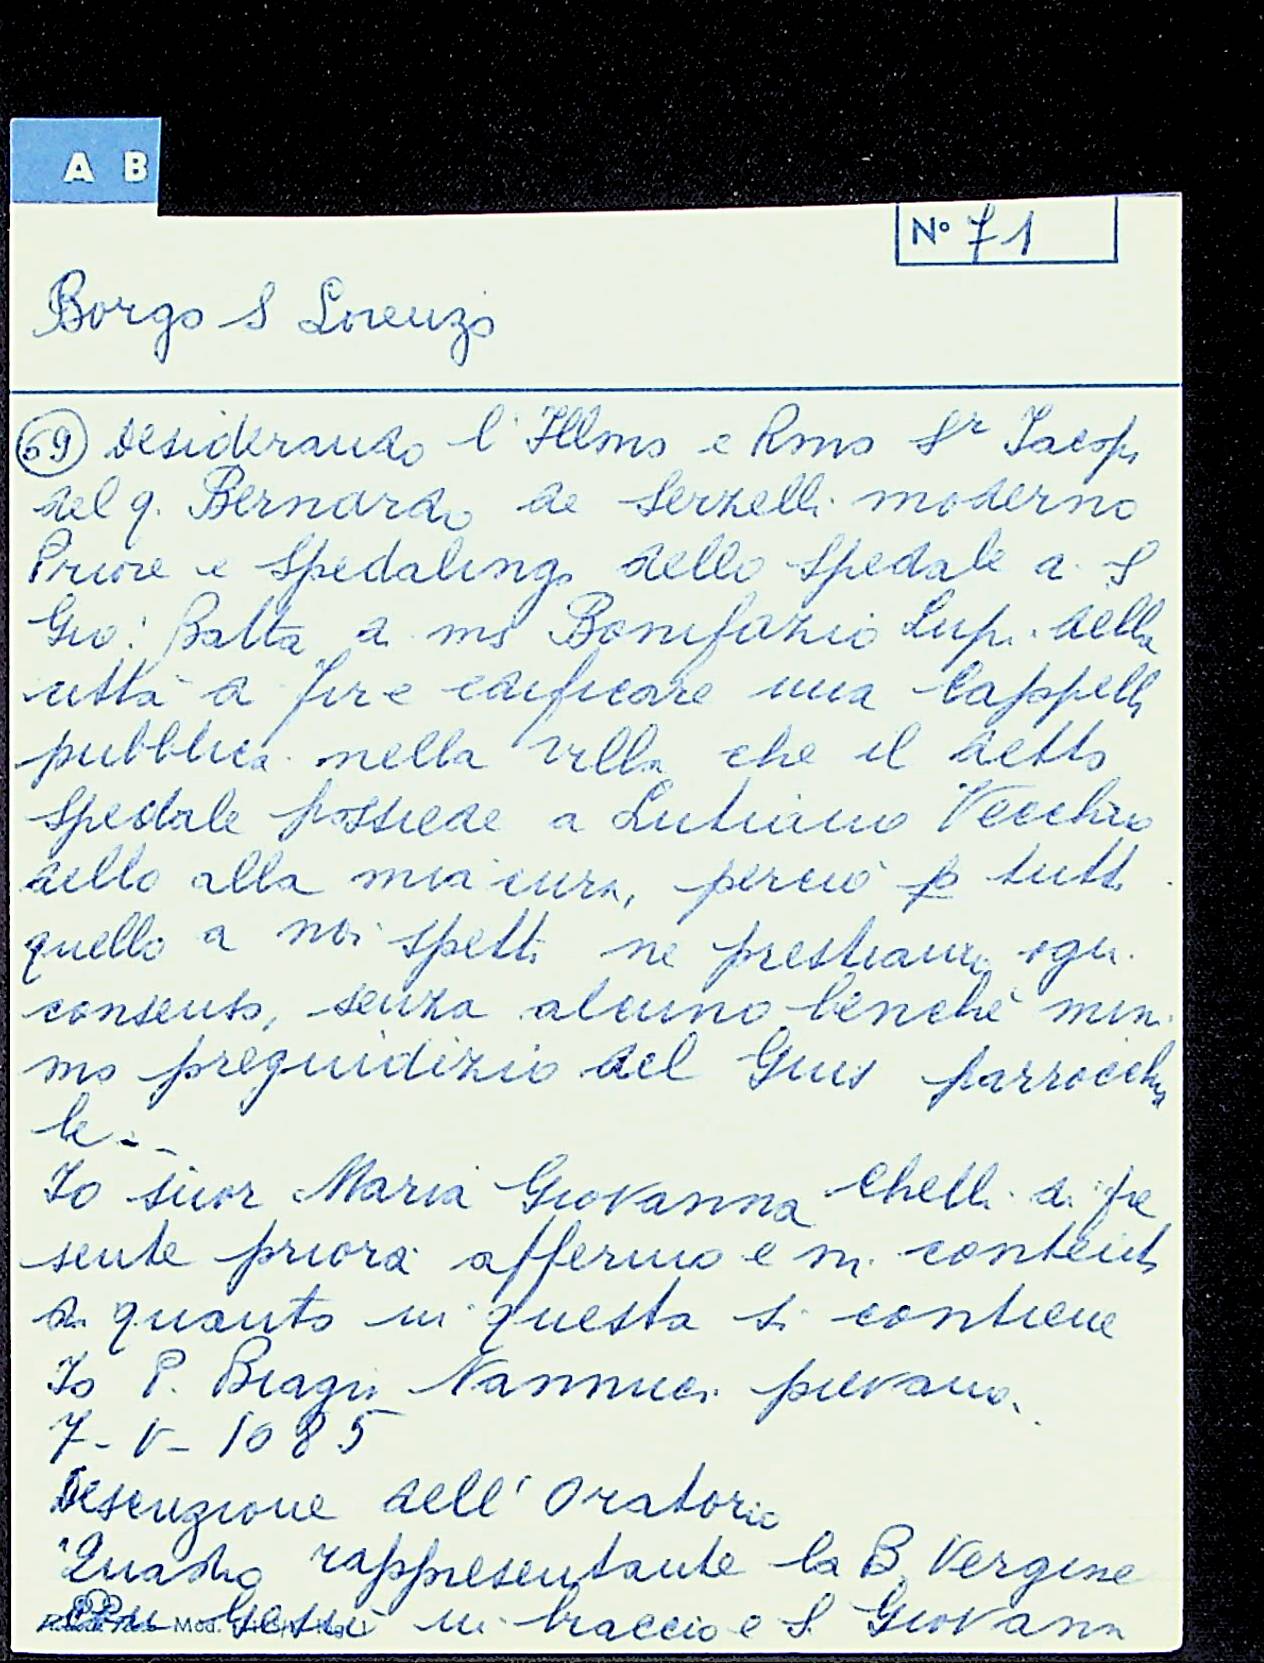 A B
N° 71
Borgo S Lorenzo
69 Desiderando l'Illmo e Rmo Sr Jacopo
del q. Bernardo de Serzelli moderno
Priore e Spedalingo dello Spedale di S
Gio: Batta di ms Bonifazio Lupi della
città di Fire edificare una Cappella
pubblica nella villa che il detto
Spedale possiede a Lutiano Vecchio
dello alla mia cura, perciò p tutto
quello a noi spetti ne prestiamo ogni
consenso, senza alcuno benché mini
mo preguidizio del Gius parrocchia
le..
Io suor Maria Giovanna Chelli di pre
sente priora affermo e mi contento
di quanto in questa si contiene
Io P. Biagio Nannucci pievano.
7-V-1685
Descrizione dell'Oratorio
"Quadro rappresentante la B. Vergine
con Gesù in braccio e S. Giovann
Mod.